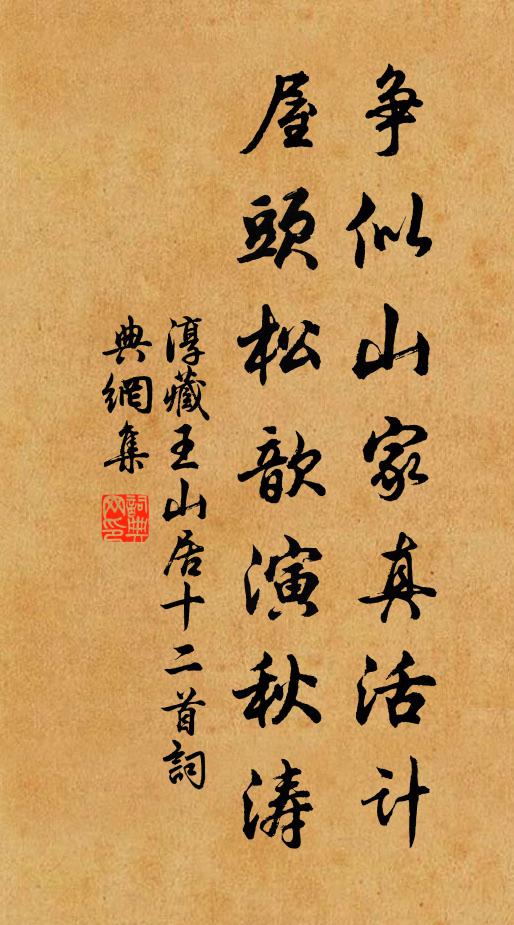 争似山家真活计
屋頭松歆演秋涛
淳藏王山居十二首詞
典網集
詞典
网印